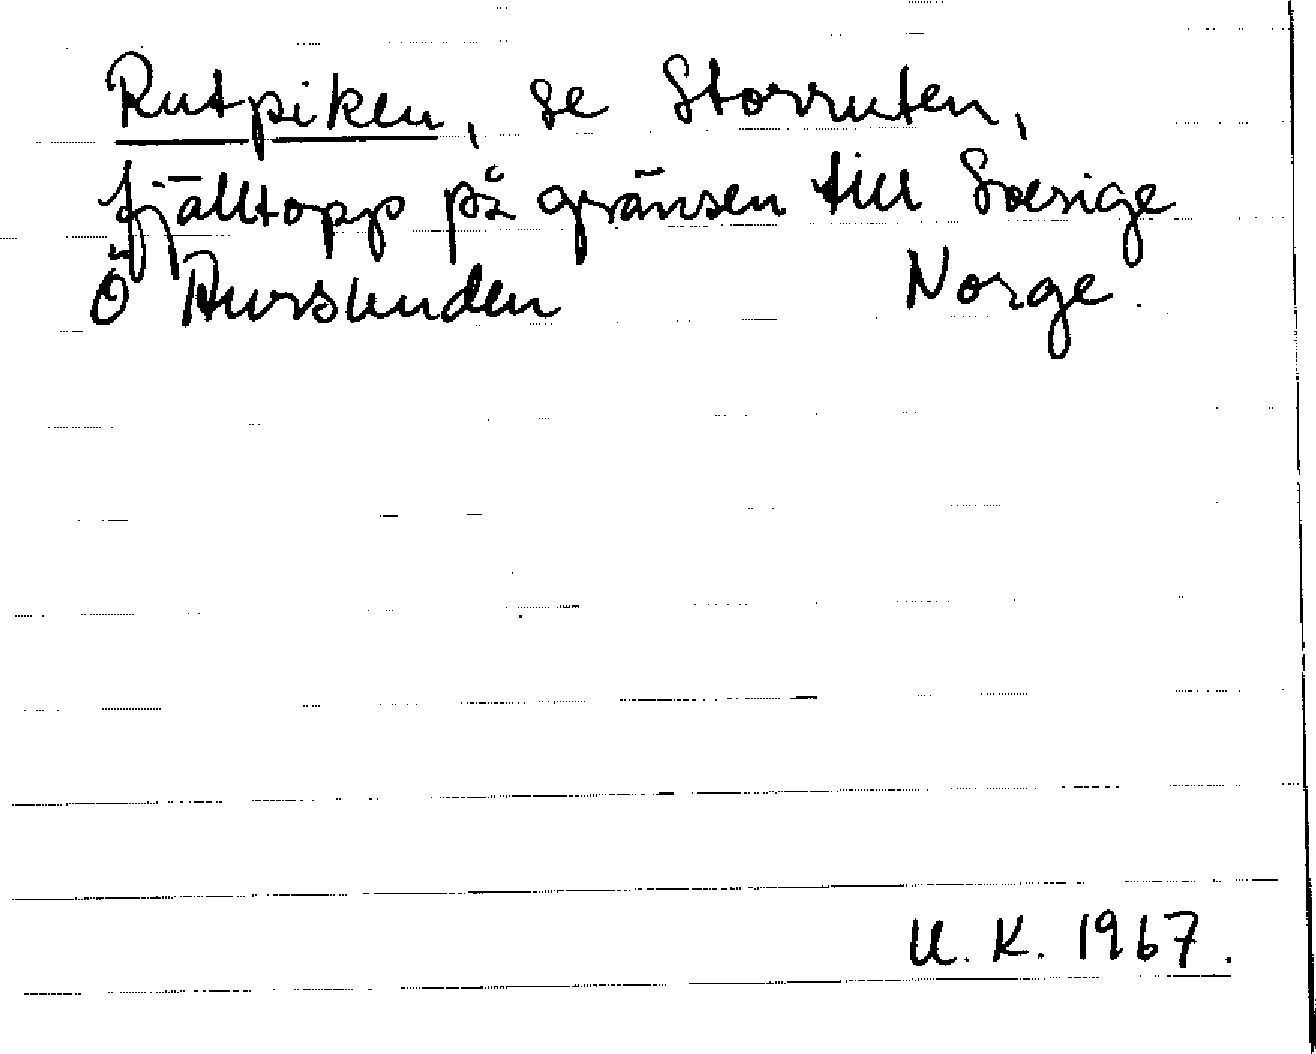 Rutpiken, se Storruten,
fjälltopp på gränsen till Sverige
Ö Aursunden Norge.
U. K. 1967.